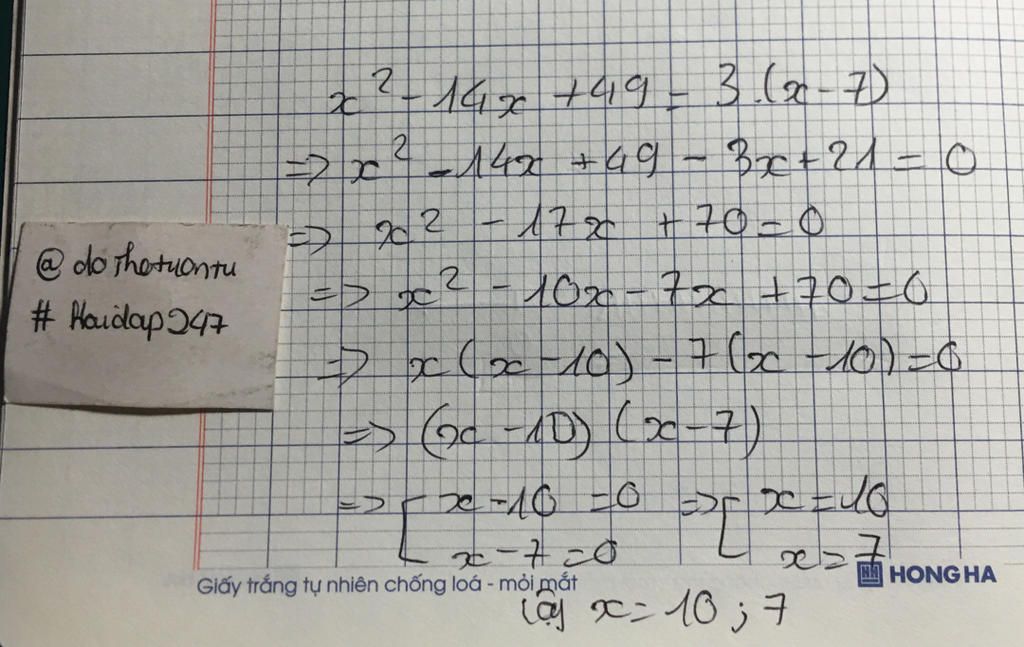 x² - 14x + 49 = 3.(x - 7)
=> x² - 14x + 49 - 3x + 21 = 0
=> x² - 17x + 70 = 0
=> x² - 10x - 7x + 70 = 0
=> x(x - 10) - 7(x - 10) = 0
=> (x - 10)(x - 7)
=> [ x - 10 = 0 => [ x = 10
x - 7 = 0 x = 7
Giấy trắng tự nhiên chống loá - mỏi mắt
HONG HA
Vậy x = 10 ; 7
#